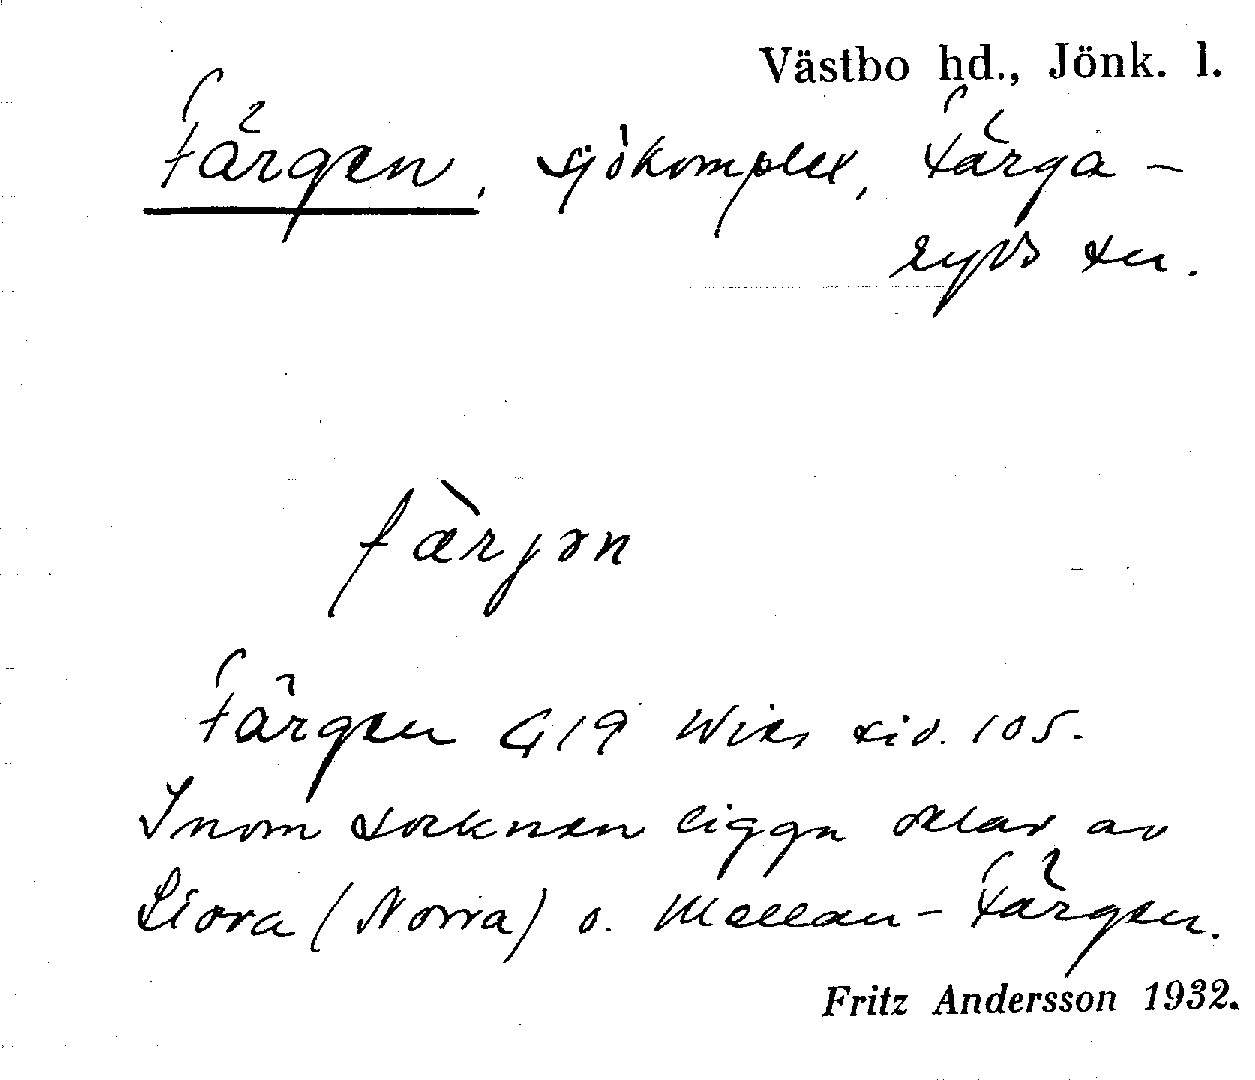 Västbo hd., Jönk. l.
Färgen, sjökomplex, Färga-
ryds sn.
fàrjən
Färgen G19 Wies sid. 105.
Inom socknen ligga delar av
Stora (Norra) o. Mellan-Färgen.
Fritz Andersson 1932.